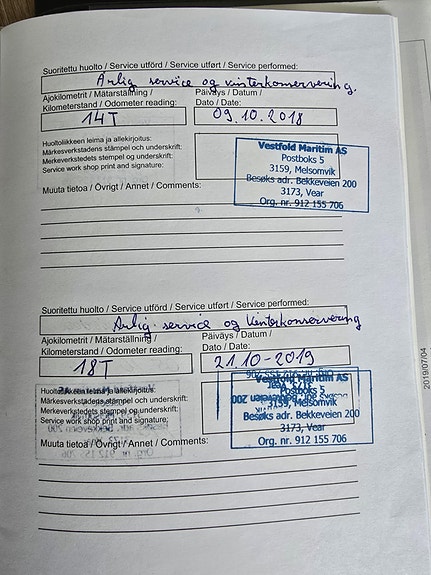 Suoritettu huolto / Service utförd / Service utført / Service performed:
Årlig service og vinterkonservering.
Ajokilometrit / Mätarställning / Päiväys / Datum /
Kilometerstand / Odometer reading: Dato / Date:
14T 09.10.2018
Huoltoliikkeen leima ja allekirjoitus:
Märkesverkstadens stämpel och underskrift:
Merkeverkstedets stempel og underskrift:
Service work shop print and signature:
Vestfold Maritim AS
Postboks 5
3159, Melsomvik
Besøks adr. Bekkeveien 200
3173, Vear
Org. nr. 912 155 706
Muuta tietoa / Övrigt / Annet / Comments:
Suoritettu huolto / Service utförd / Service utført / Service performed:
Årlig service og Vinterkonservering
Ajokilometrit / Mätarställning / Päiväys / Datum /
Kilometerstand / Odometer reading: Dato / Date:
18T 21.10-2019
Huoltoliikkeen leima ja allekirjoitus:
Märkesverkstadens stämpel och underskrift:
Merkeverkstedets stempel og underskrift:
Service work shop print and signature:
Vestfold Maritim AS
Postboks 5
3159, Melsomvik
Besøks adr. Bekkeveien 200
3173, Vear
Org. nr. 912 155 706
Muuta tietoa / Övrigt / Annet / Comments:
2019/07/04